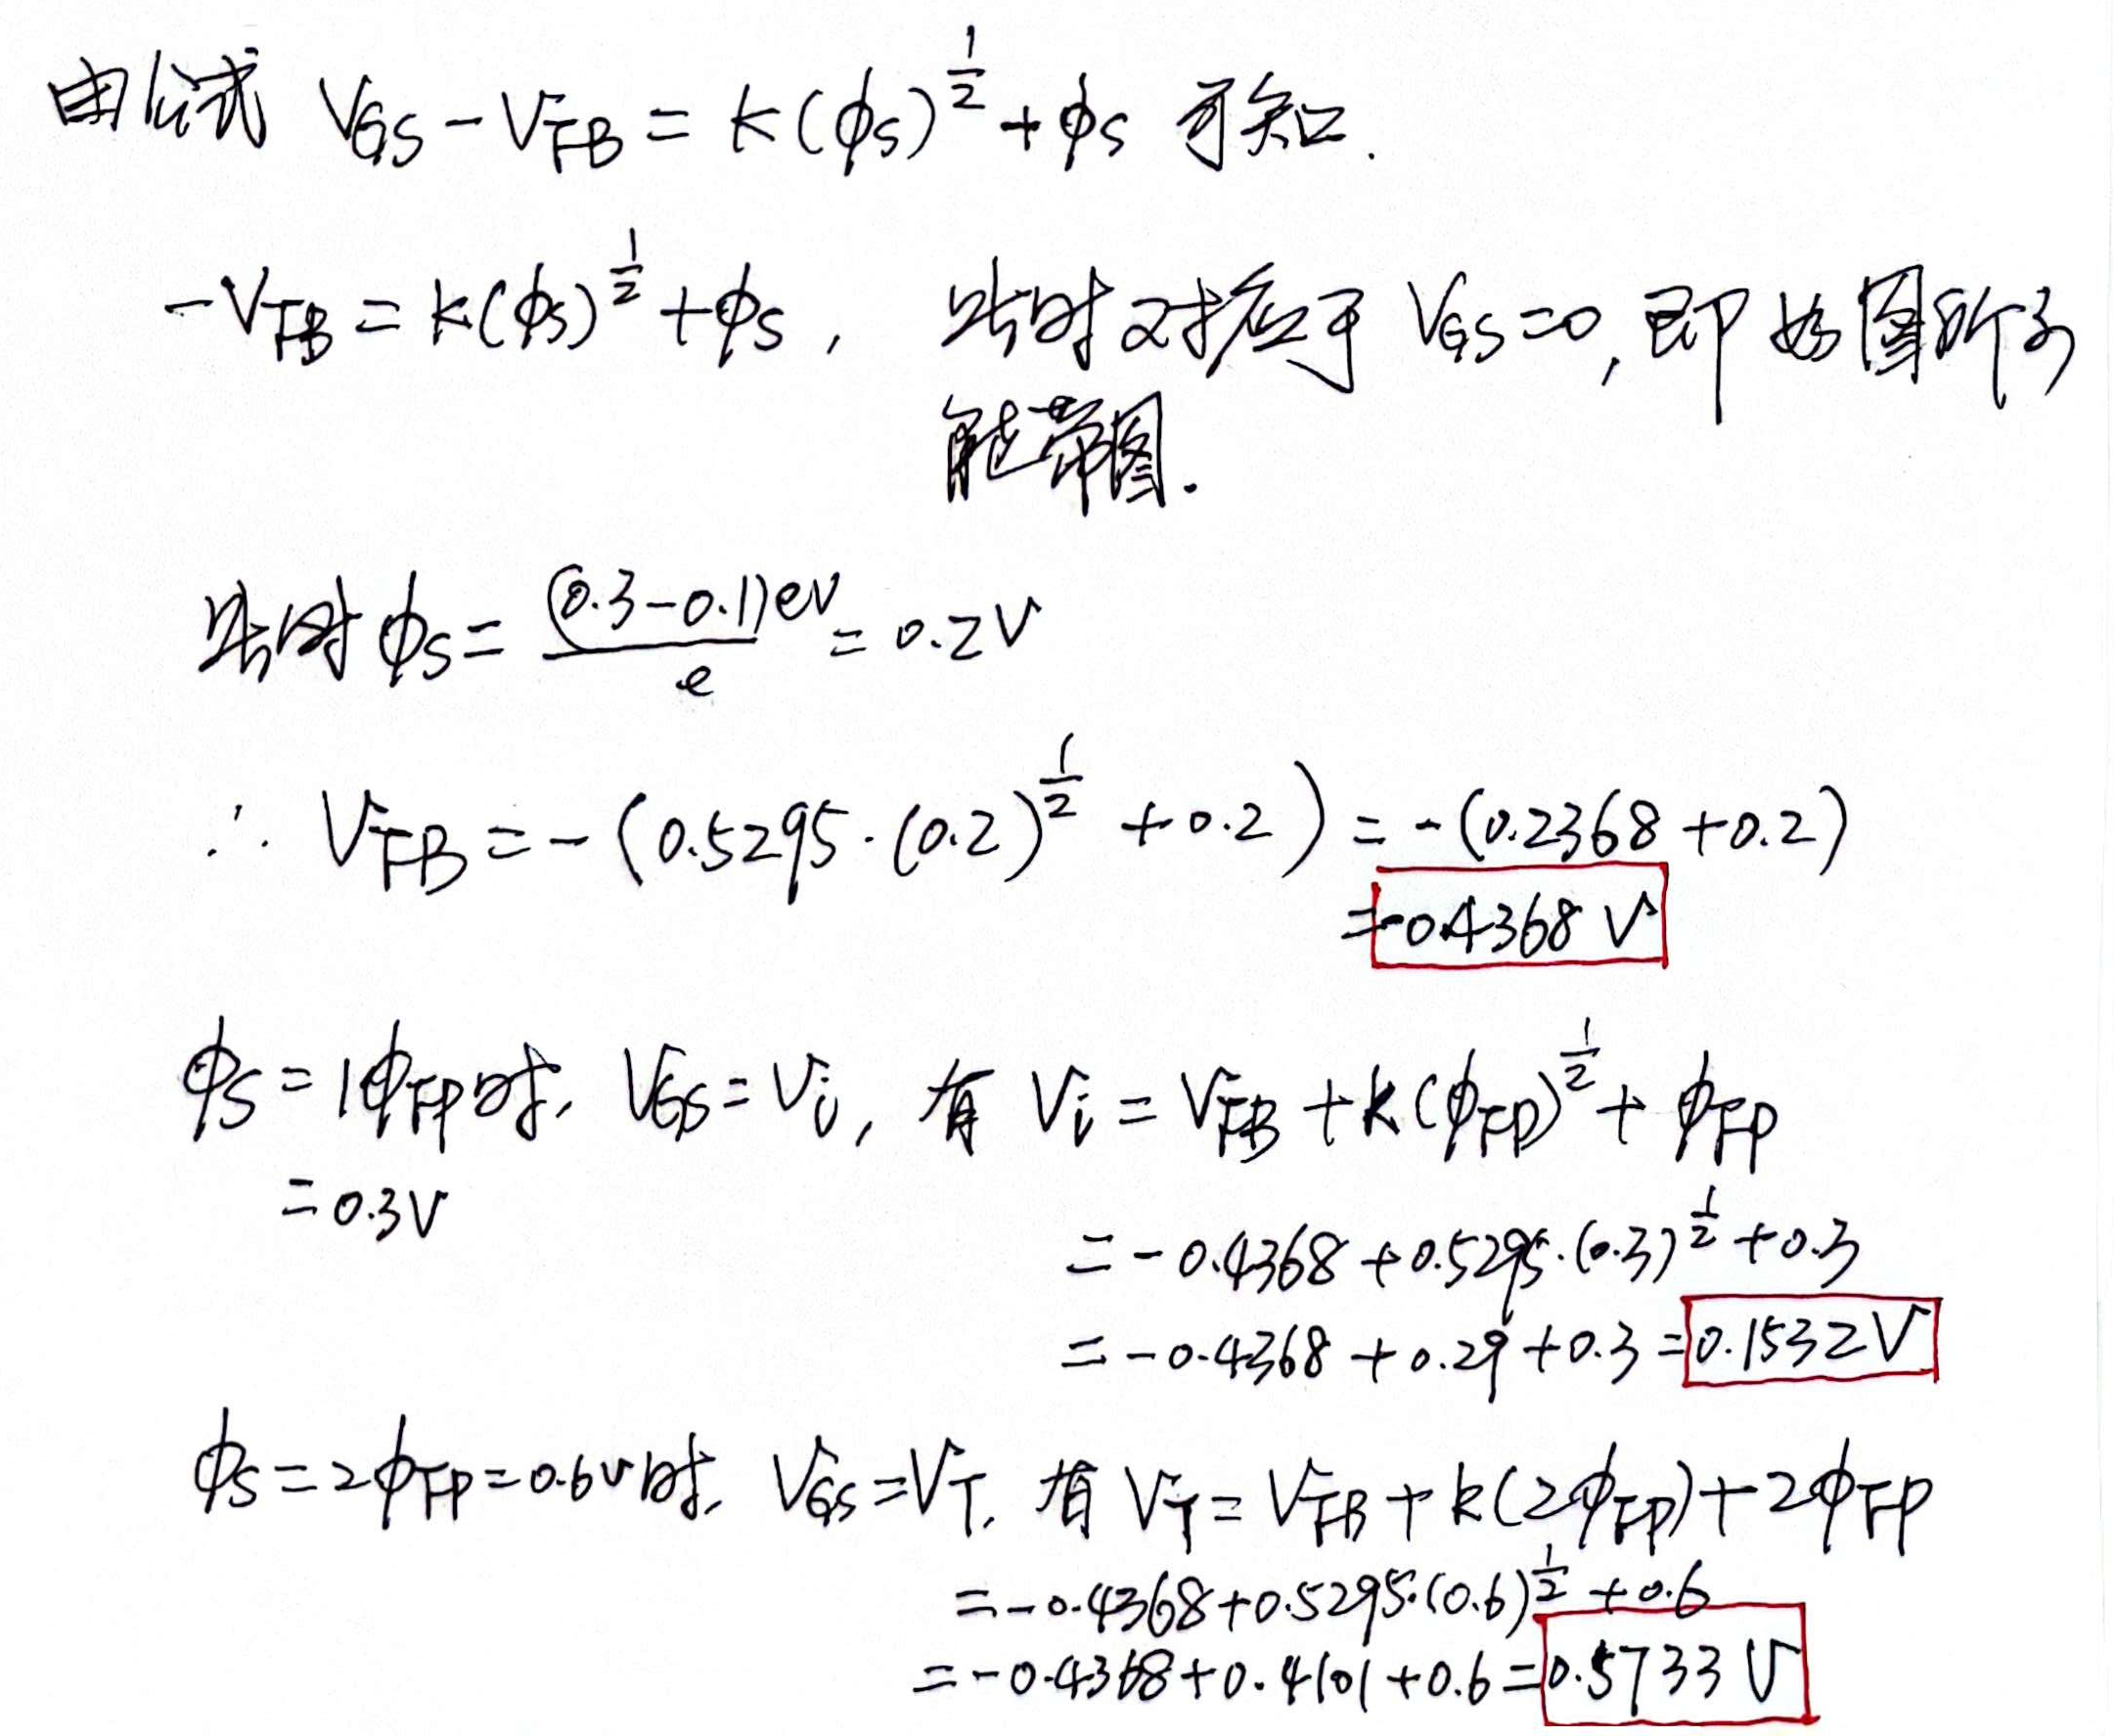 由公式 V_GS - V_FB = k(ϕ_S)^{1/2} + ϕ_S 可知.
-V_FB = k(ϕ_S)^{1/2} + ϕ_S , 此时对应于 V_GS=0, 即如图所示
能带图.
此时 ϕ_S = (0.3-0.1)eV / e = 0.2V
∴ V_FB = -(0.5295·(0.2)^{1/2} + 0.2) = -(0.2368+0.2)
= -0.4368 V
ϕ_S = 1ϕ_FP时, V_GS = V_i, 有 V_i = V_FB + k(ϕ_FP)^{1/2} + ϕ_FP
= 0.3V
= -0.4368 + 0.5295·(0.3)^{1/2} + 0.3
= -0.4368 + 0.29 + 0.3 = 0.1532V
ϕ_S = 2ϕ_FP = 0.6V时, V_GS = V_T, 有 V_T = V_FB + k(2ϕ_FP) + 2ϕ_FP
= -0.4368 + 0.5295·(0.6)^{1/2} + 0.6
= -0.4368 + 0.4101 + 0.6 = 0.5733 V